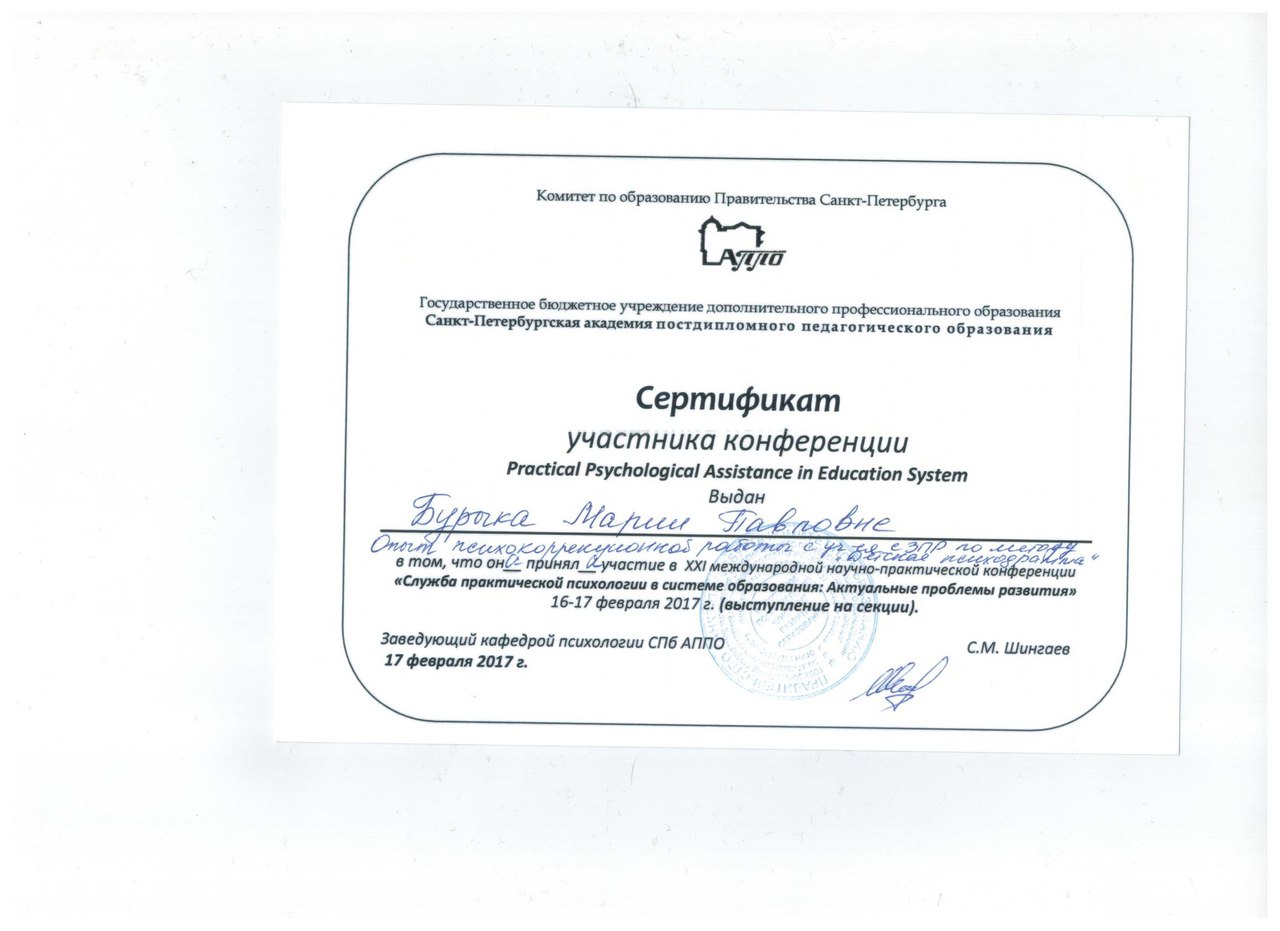 Комитет по образованию Правительства Санкт-Петербурга
АППО
Государственное бюджетное учреждение дополнительного профессионального образования
Санкт-Петербургская академия постдипломного педагогического образования
Сертификат
участника конференции
Practical Psychological Assistance in Education System
Выдан
Бурыка Марии Павловне
Опыт психокоррекционной работы с уч-ся с ЗПР по методу
"Детская психодрамма"
в том, что она приняла участие в XXI международной научно-практической конференции
«Служба практической психологии в системе образования: Актуальные проблемы развития»
16-17 февраля 2017 г. (выступление на секции).
Заведующий кафедрой психологии СПб АППО
С.М. Шингаев
17 февраля 2017 г.